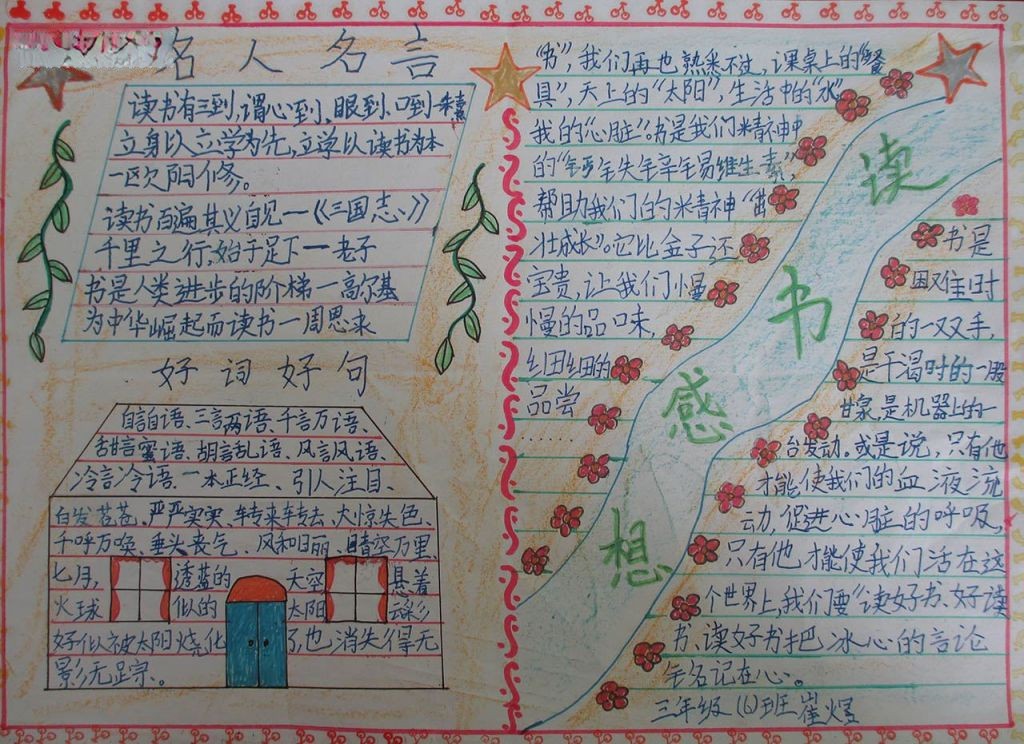 名人名言
读书有三到,谓心到、眼到、口到
立身以立学为先,立学以读书为本
一区欠阳修。
读书百遍其义自见一《三国志、》
千里之行,始于足下一老子
书是人类进步的阶梯一高尔基
为中华崛起而读书一周恩来
好词好句
自言自语、三言两语、千言万语、
甜言蜜语、胡言乱语、风言风语、
冷言冷语、一本正经、引人注目、
白发苍苍、严严实实、转来转去、大惊失色、
千呼万唤、垂头丧气、风和日丽、晴空万里、
七月,透蓝的天空悬着
火球似的太阳
好似被太阳烧化了,也消失得无
影无足宗。
"书",我们再也熟悉不过,课桌上的"餐
具",天上的"太阳",生活中的"水"
我的"心脏"书是我们精神中
的"钙铁锌易维生素",
帮助我们的精神"茁
壮成长"。它比金子还
宝贵,让我们慢
慢的品味,
细细的
品尝
......
读书感想
书是
困难时
的一双手,
是干渴时的一股
甘泉,是机器上的一
台发动。或是说,只有他
才能使我们的血液流
动,促进心脏的呼吸,
只有他才能使我们活在这
个世界上,我们要"读好书、好读
书、读好书把冰心的言论
牢名记在心。
三年级(6)班崔煜